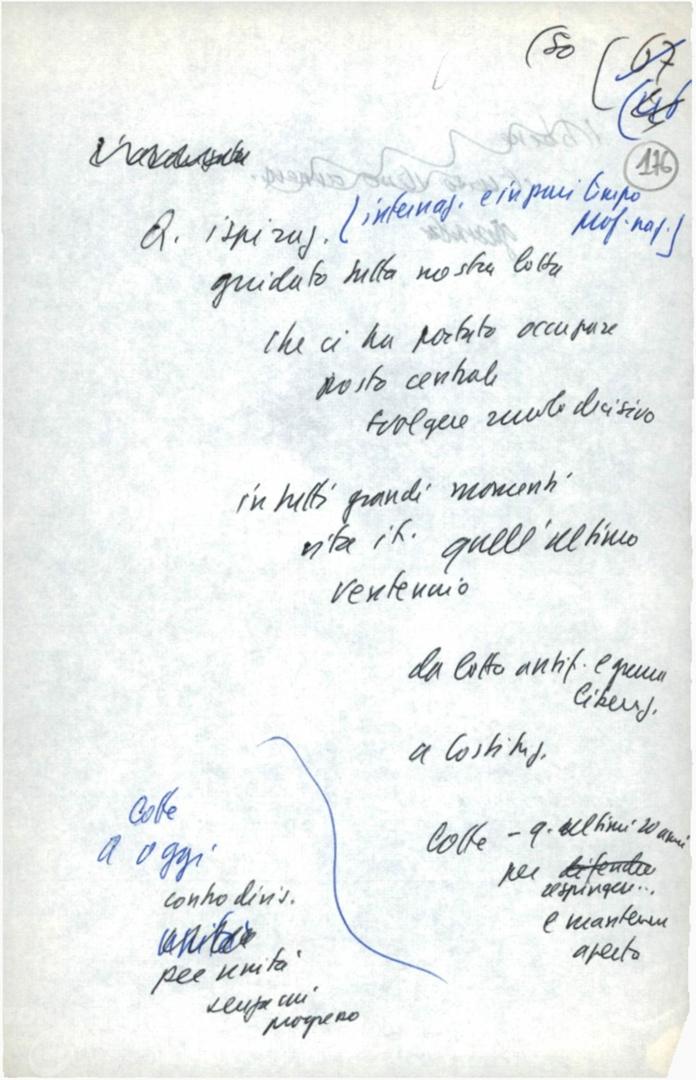 (50
(67
176
Q. ispiraz. (internaz. e in pari tempo
prof. naz.)
guidato tutta nostra lotta
che ci ha portato occupare
posto centrale
svolgere ruolo decisivo
in tutti grandi momenti
vita it. quell'ultimo
ventennio
da lotta antif. e guerra
liberaz.
a Costituz.
lotte - q. ultimi 20 anni
per difendere
respingere...
e mantenere
aperto
lotte
a oggi
contro divis.
unità
per unità
senza cui
progresso